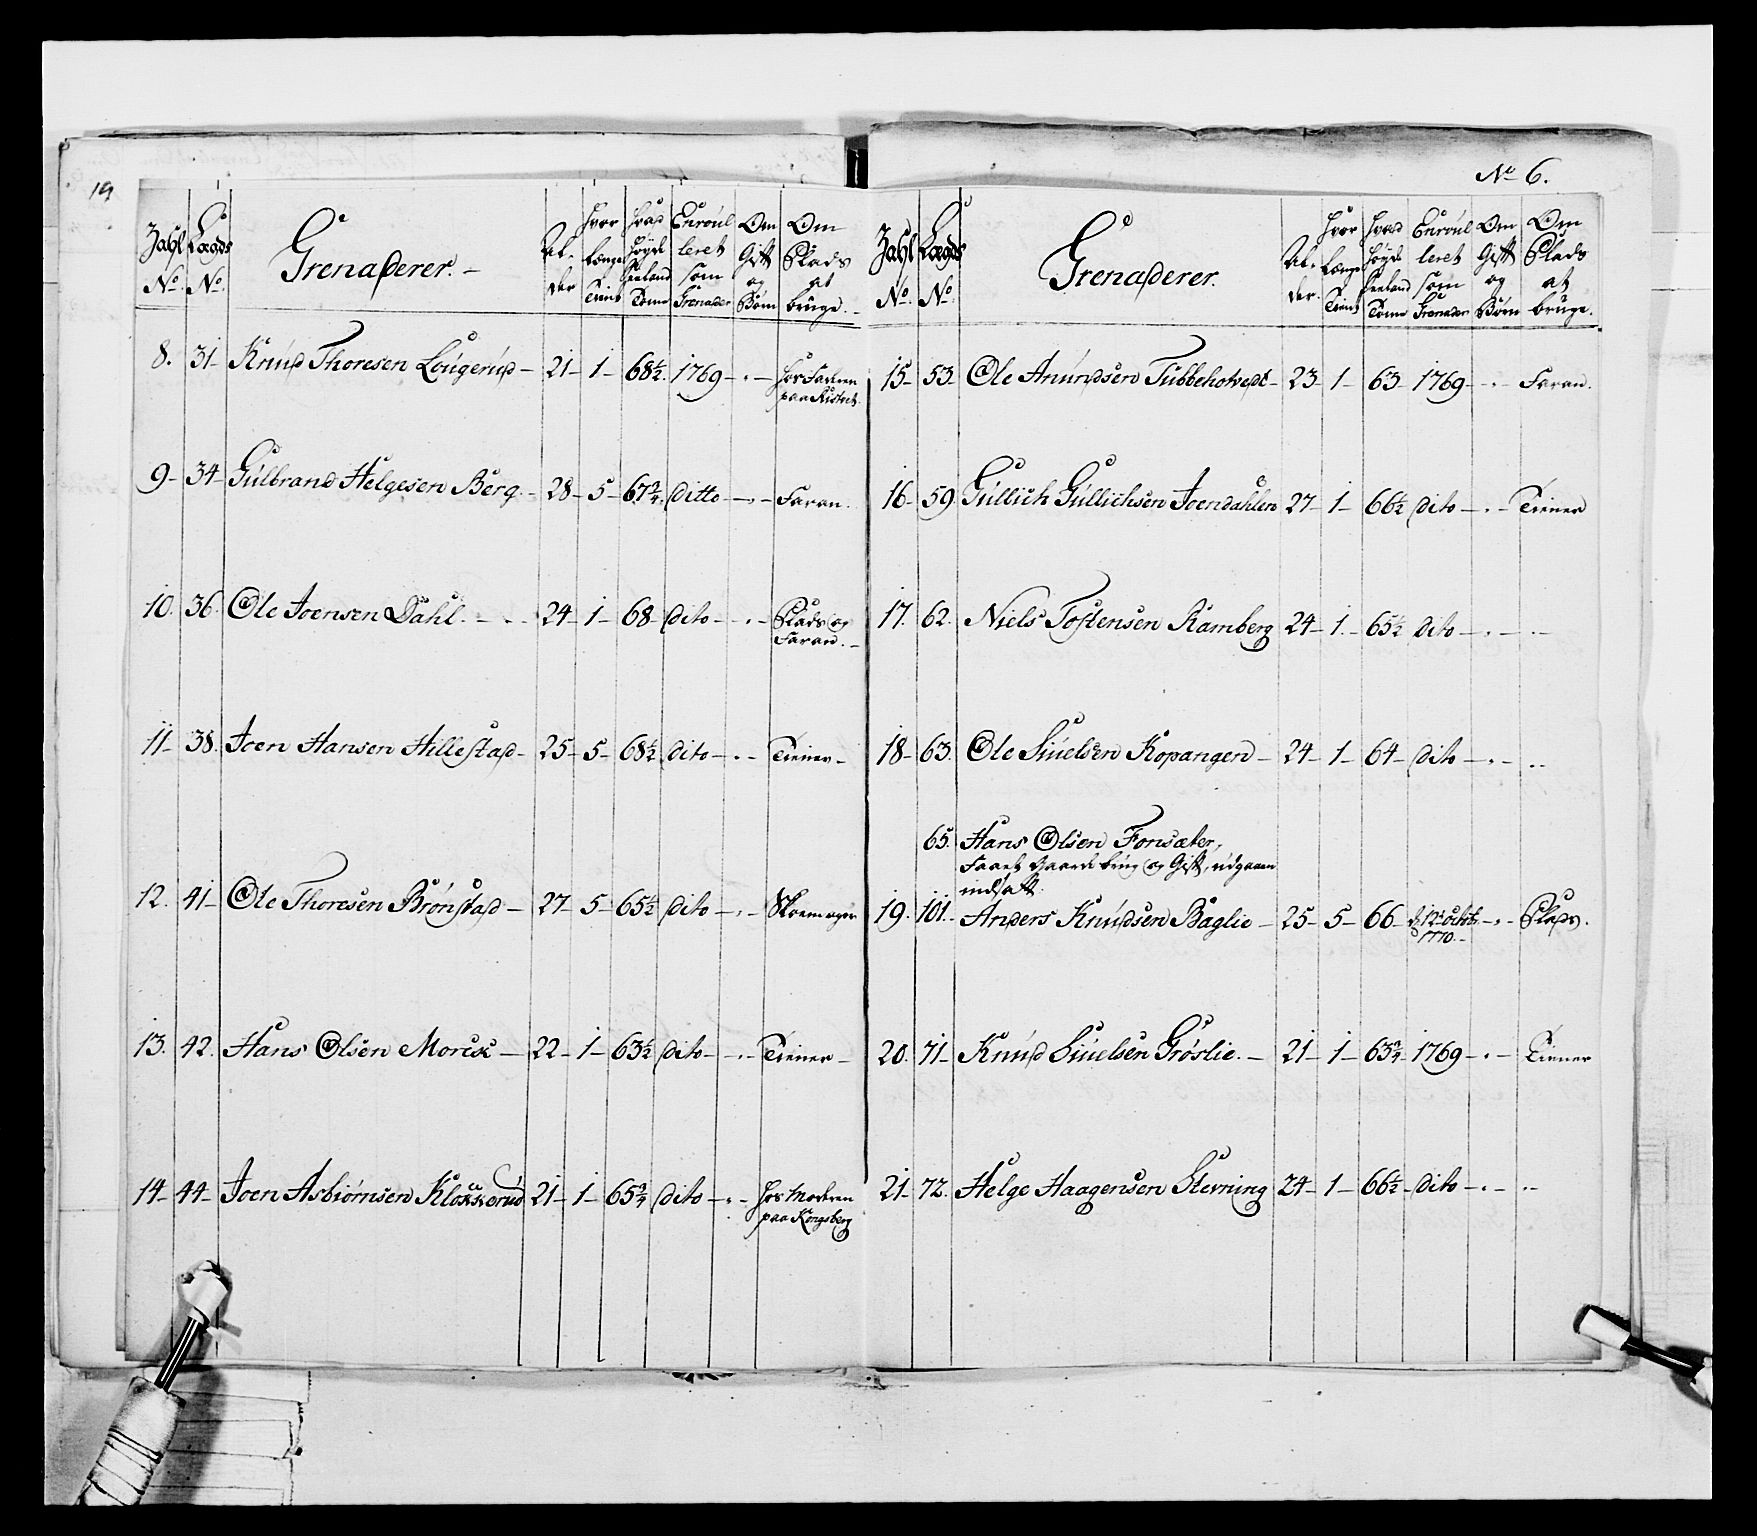 19
Zahl No.
Lægds No.
Grenaderer.
Al-
der
hvor
Længe
Tient
hvad
höyde
Seeland
Tomme
Enroul
leret
som
Grenader
Om
Gift
og
Börn
Om
Plads
at
bruge.
8. 31 Knud Thoresen Lougerud 21 1 68½ 1769 " hos Faderen
paa
9 34 Gulbrand Helgesen Berg 28 5 67¾ Ditto " Faran.
10. 36. Ole Joensen Dahl. 24 1 68 Dito " Plads og
Faran.
11 38. Joen Hansen Hillestad 25 5 68½ Dito " Tiener
12. 41 Ole Thoresen Brönstad 27 5 65½ Dito " Skoemager
13. 42. Hans Olsen Morese 22 1 63½ Dito " Tiener
14 44 Joen Asbiörnsen Klokkerud 21 1 65¾ Dito " hos Moderen
paa Kongsberg
No 6.
Zahl No.
Lægds No.
Grenaderer.
Al-
der.
hvor
Længe
Tient
hvad
höyde
Seeland
Tomme
Enroul
leret
som
Grenader
Om
Gift
og
Börn
Om
Plads
at
bruge.
15 53. Ole Anundsen Tubbehotvedt 23 1 63 1769 " Faran.
16 59. Gullich Gullichsen Joendahlen 27 1 66½ Dito " Tiener
17. 62. Niels Tostensen Ramberg 24 1. 65½ Dito " "
18 63. Ole Siuelsen Kopangen 24 1 64 Dito " "
65. Hans Olsen Fonsæter,
Faaet Gaarde brug og Gift, udgaaen
indsatt.
19. 101. Anders Knudsen Baglie 25 5 66 d. 12te Octob.
1770. " Plads.
20. 71 Knud Siuelsen Gröslie. 21 1 63¾ 1769 " Tiener
21 72. Helge Haagensen Stevning 24 1 66½ Dito " "